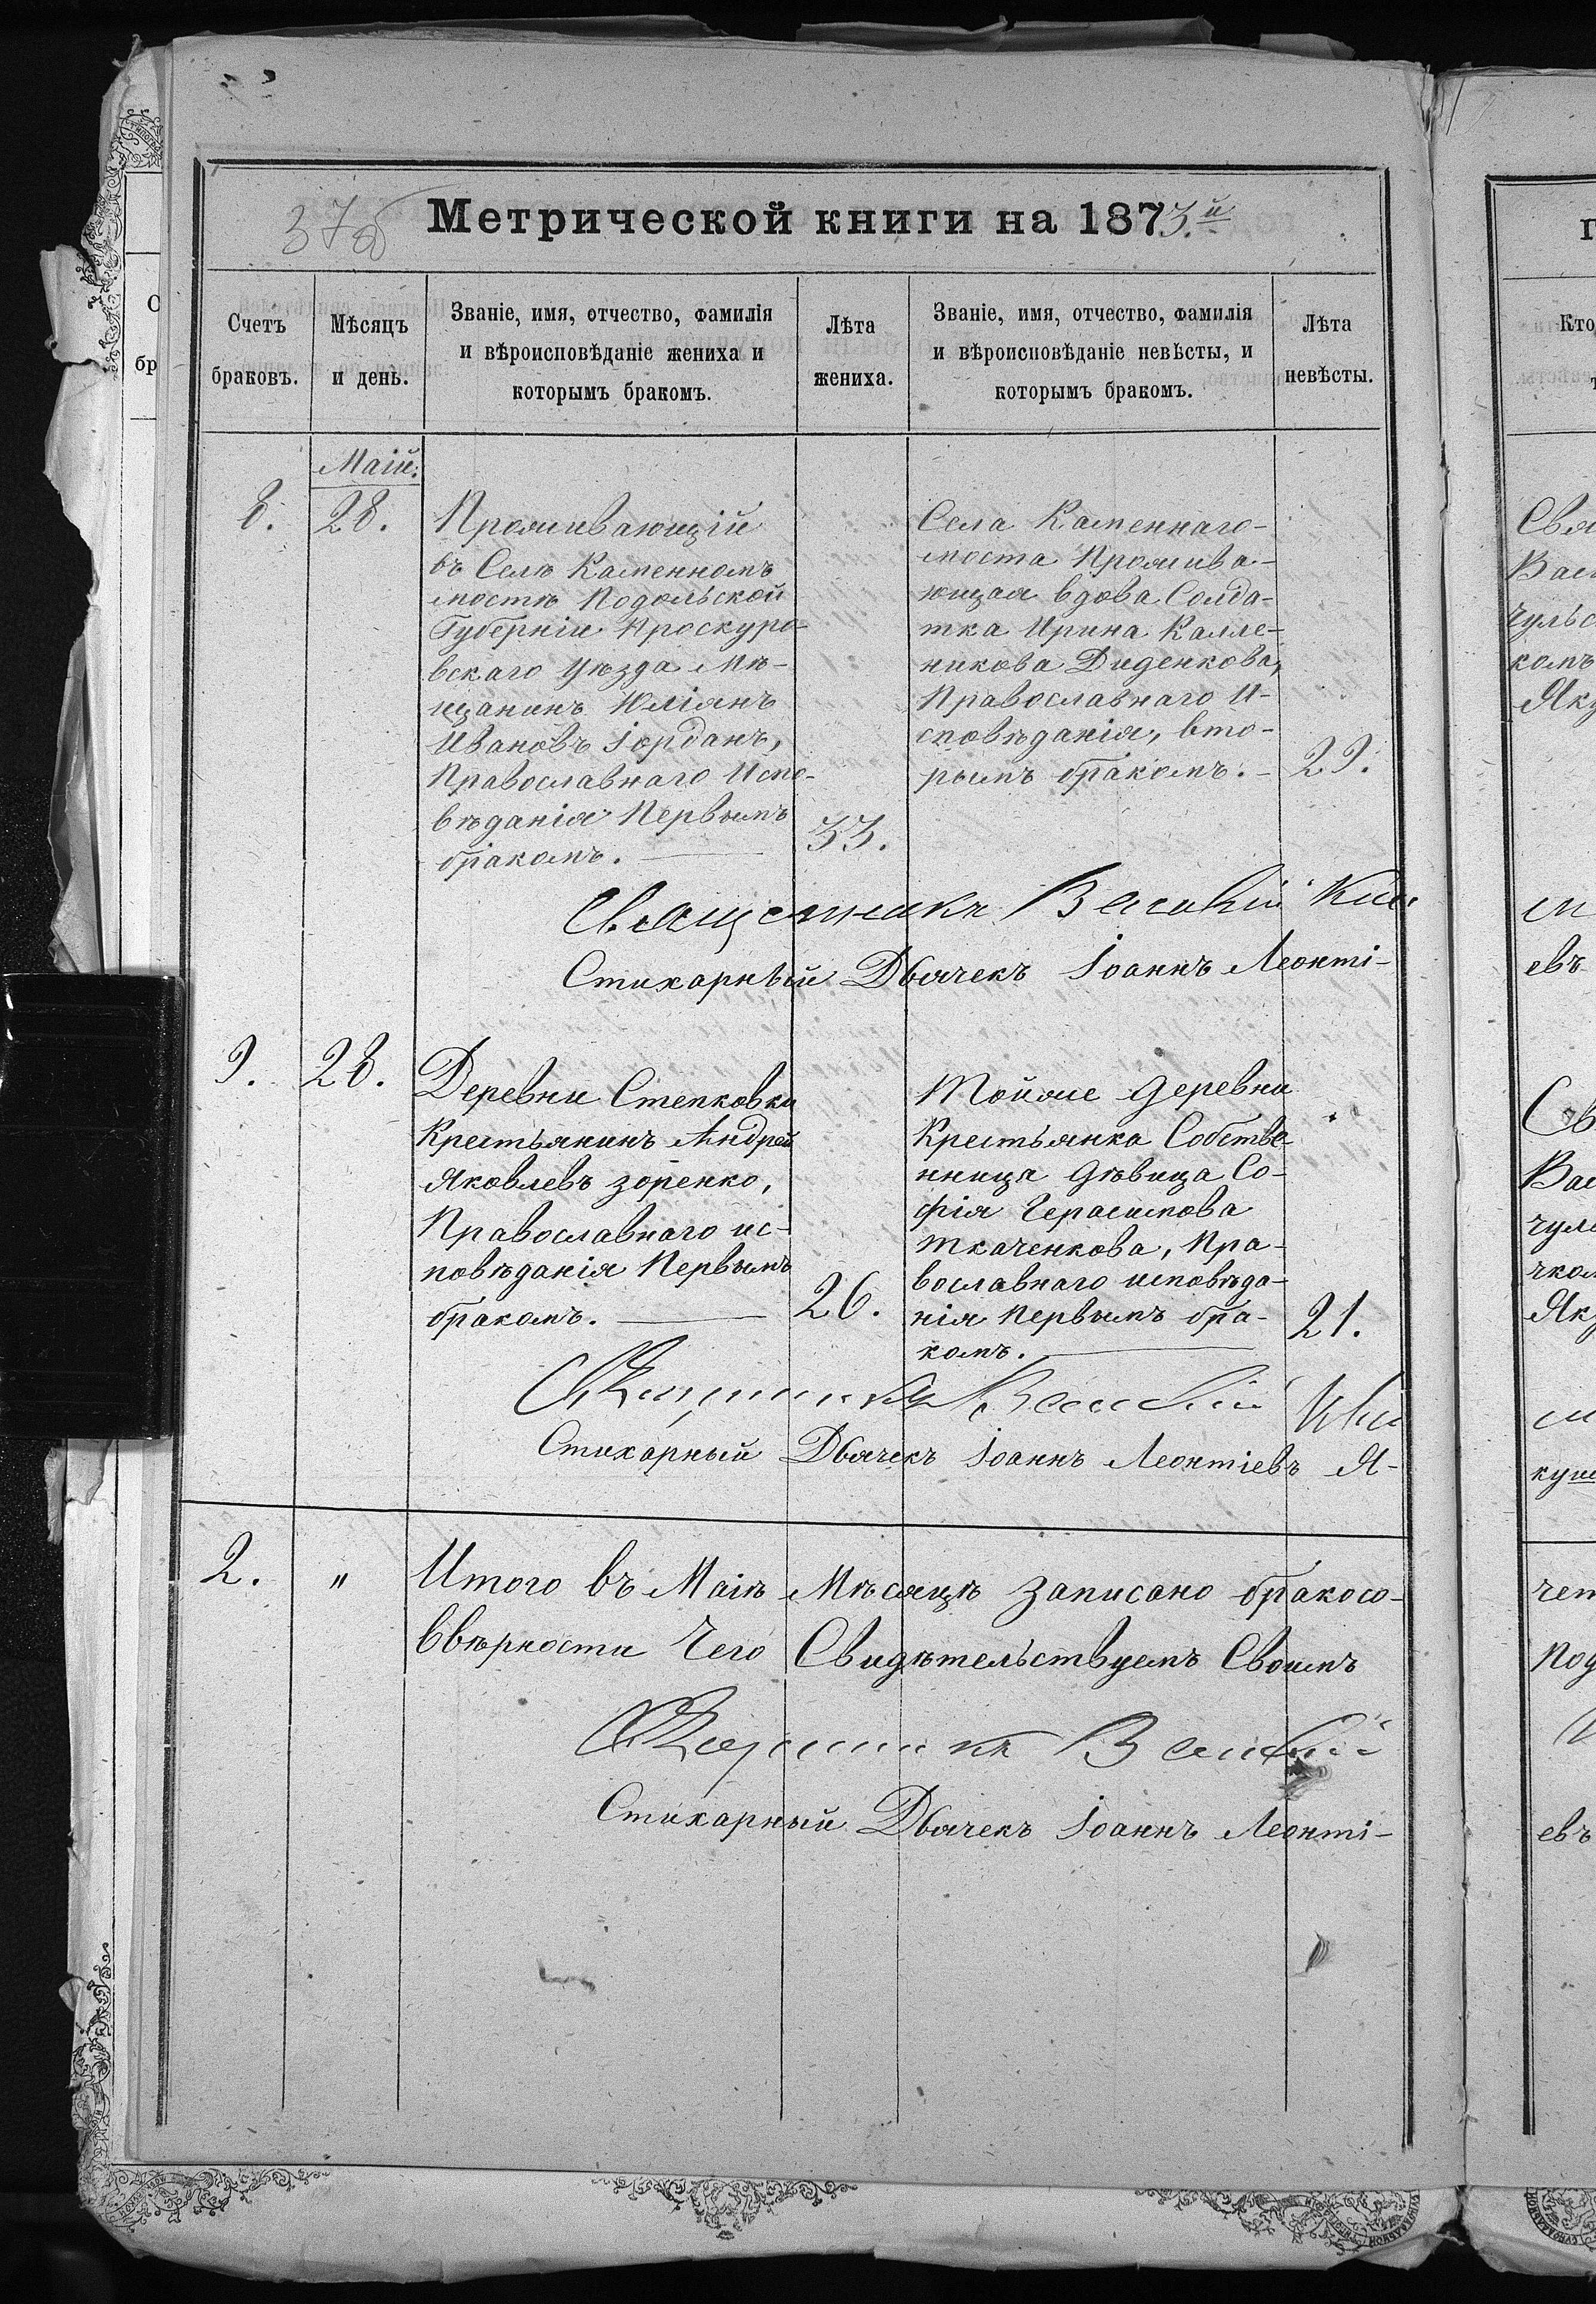 37об
Метрической книги на 1873.й
Счетъ браковъ.
Мѣсяцъ и день.
Званіе, имя, отчество, фамилія
и вѣроисповѣданіе жениха и
которымъ бракомъ.
Лѣта жениха.
Званіе, имя, отчество, фамилія
и вѣроисповѣданіе невѣсты, и
которымъ бракомъ.
Лѣта невѣсты.
Маій.
8.
28.
Проживающій
въ Селѣ Каменномъ
мостѣ Подольской
Губерніи Проскуро-
вскаго Уѣзда Мѣ-
щанинъ Юліянъ
Ивановъ Іорданъ,
Православнаго Испо-
вѣданія Первымъ
бракомъ.
33.
Села Каменнаго-
моста Прожива-
ющая вдова Солда-
тка Ирина Калле-
никова Диденкова,
Православнаго И-
сповѣданія, вто-
рымъ бракомъ.
29.
Священникъ Василій
Стихарный Дьячекъ Іоаннъ Леонті-
9.
28.
Деревни Степковки
Крестьянинъ Андрей
Яковлевъ Зоренко,
Православнаго ис-
повѣданія Первымъ
бракомъ.
26.
Тойже деревни
Крестьянка Собстве-
нница дѣвица Со-
фія Герасимова
Ткаченкова, Пра-
вославнаго исповѣда-
нія Первымъ бра-
комъ.
21.
Священникъ Василій
Стихарный Дьячекъ Іоаннъ Леонтіевъ Я-
2.
"
Итого въ Маіѣ Мѣсяцѣ записано бракосо-
Ввѣрности Чего Свидѣтельствуемъ Своимъ
Священникъ Василій
Стихарный Дьячекъ Іоаннъ Леонті-
Кто
Вас
чульс
комъ
Яку
евъ
Яку
куш
чет
под
евъ